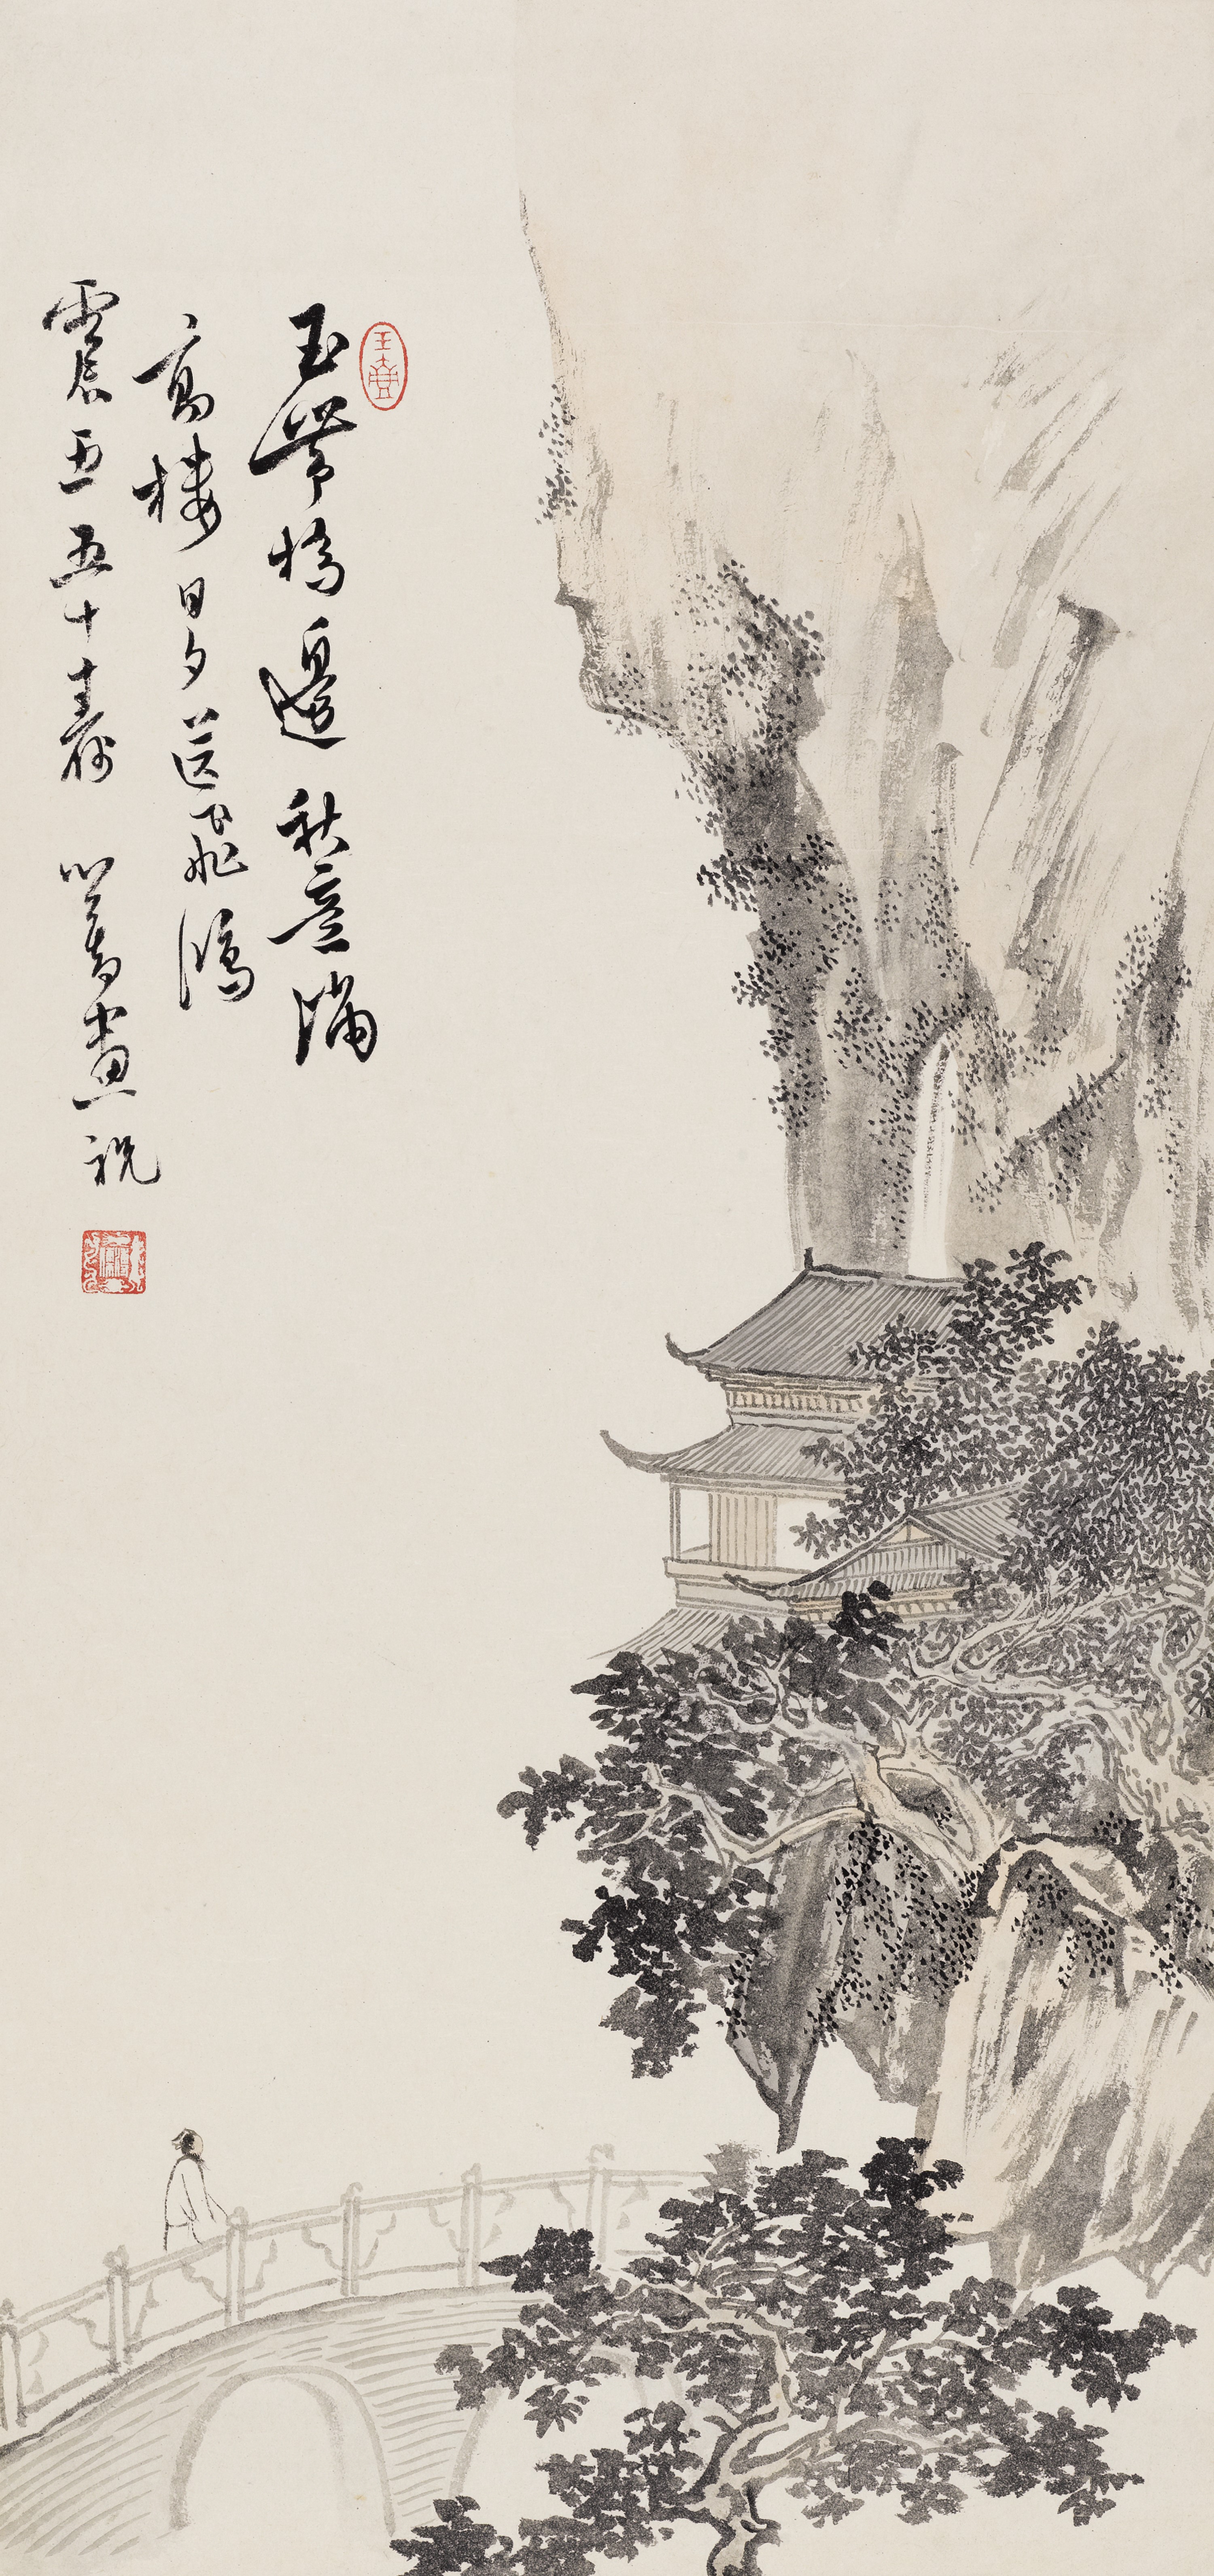 玉帶橋邊秋意滿
高樓日夕送飛鴻
震五五十壽 心畬畫祝
玉壺